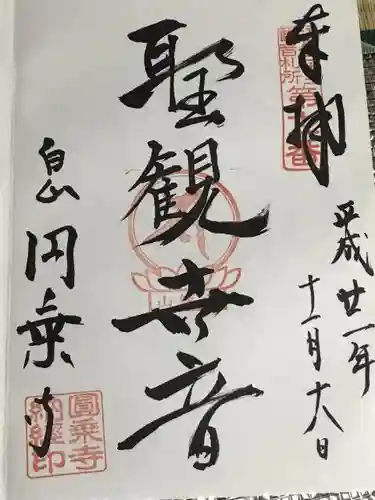 奉拝
平成廿一年
十一月十八日
聖観世音
白山
円乗寺
圓乗寺
納経印